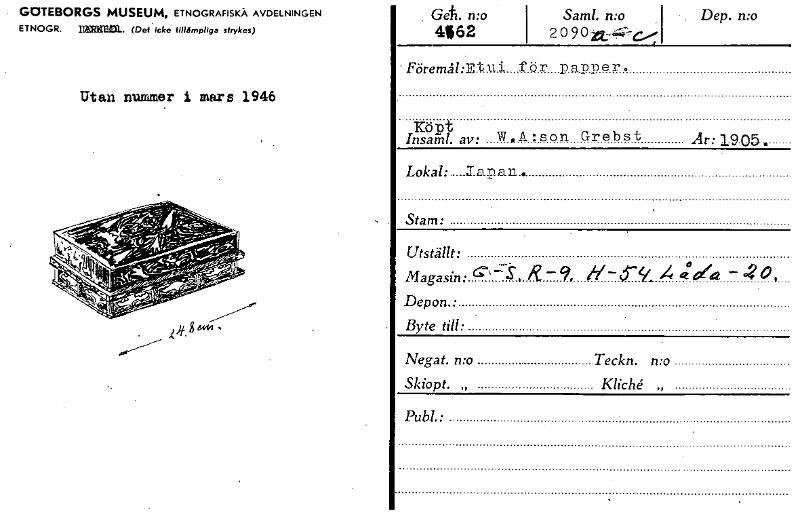 GÖTEBORGS MUSEUM, ETNOGRAFISKA AVDELNINGEN
ETNOGR. (Det icke tillämpliga strykes)
Utan nummer i mars 1946
24.8 cm.
Geh. n:o
Saml. n:o
Dep. n:o
2090 a-c,
Föremål: Etui för papper.
Köpt
Insaml. av: W.A:son Grebst År: 1905.
Lokal: Japan.
Stam:
Utställt:
Magasin: G-S. R-9. H-54. Låda-20.
Depon.:
Byte till:
Negat. n:o Teckn. n:o
Skiopt. „ Kliché „
Publ.: